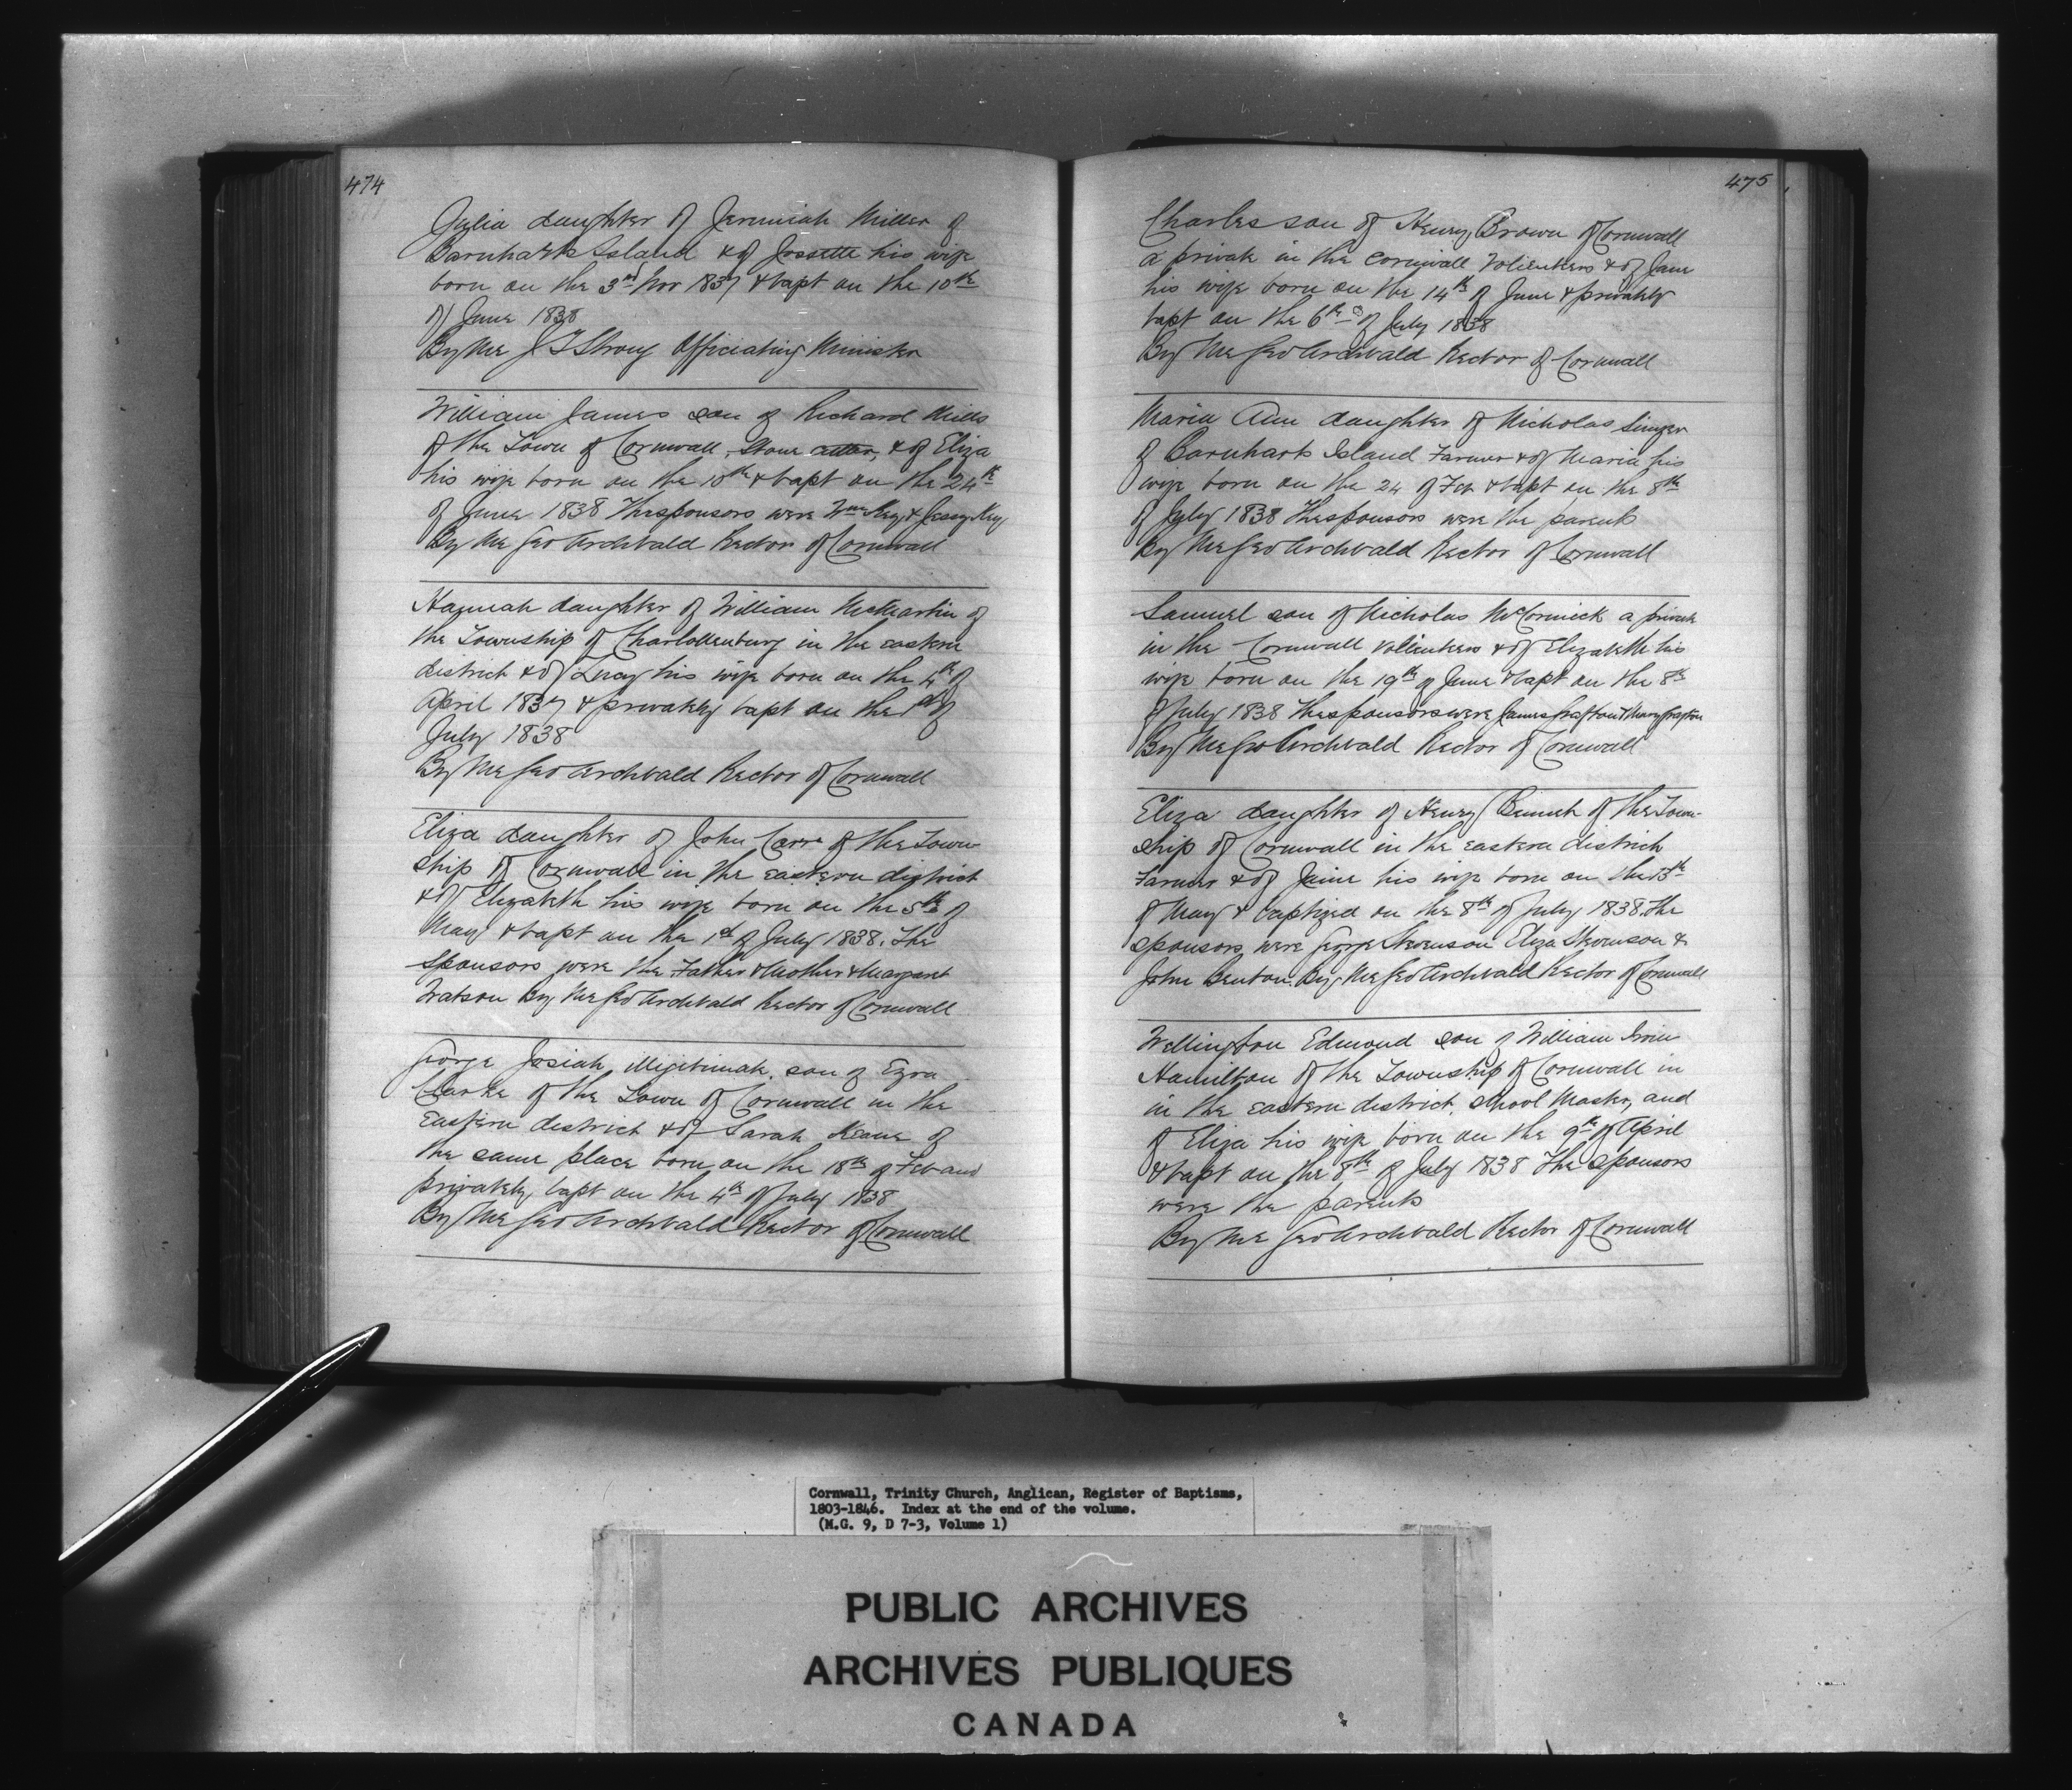 474
Julia daughter of Jeremiah Miller of
Barnharts Island & of Jossette his wife
born on the 3rd Nov 1837 & bapt on the 10th
of June 1838
By Me J T Strong Officiating Minister
William James son of Richard Mills
of the Town of Cornwall, Stone cutter, & of Eliza
his wife born on the 10th & bapt on the 24th
of June 1838 The sponsors were Wm Key & Jessy Key
By Me Geo Archbald Rector of Cornwall
Hannah daughter of William McMartin of
the Township of Charlottenburg in the eastern
district & of Lucy his wife born on the 4th of
April 1837 & privately bapt on the 1st of
July 1838
By Me Geo Archbald Rector of Cornwall
Eliza daughter of John Carr of the Town-
ship of Cornwall in the eastern district
& of Elizabeth his wife born on the 5th of
May & bapt on the 1st of July 1838. The
sponsors were the Father & Mother & Margaret
Watson By Me Geo Archbald Rector of Cornwall
George Josiah illegitimate son of Ezra
Clarke of the Town of Cornwall in the
Eastern district & of Sarah Keane of
the same place born on the 18th of Feb and
privately bapt on the 4th of July 1838
By Me Geo Archbald Rector of Cornwall
475
Charles son of Henry Brown of Cornwall
a private in the Cornwall Volienters & of Jane
his wife born on the 14th of June & privately
bapt on the 6th of July 1838
By Me Geo Archbald Rector of Cornwall
Maria Ann daughter of Nicholas
of Barnharts Island Farmer & of Maria his
wife born on the 24 of Feb & bapt on the 8th
of July 1838 The sponsors were the parents
By Me Geo Archbald Rector of Cornwall
Samuel son of Nicholas McCormick a private
in the Cornwall Volienters & of Elizabeth his
wife born on the 19th of June & bapt on the 8th
of July 1838 The sponsors were James Grafton & Mary Grafton
By Me Geo Archbald Rector of Cornwall
Eliza daughter of Henry of the Town-
ship of Cornwall in the eastern district
Farmer & of Jane his wife born on the 13th
of May & baptized on the 8th of July 1838. The
sponsors were George Stevenson Eliza Stevenson &
John Benton. By Me Geo Archbald Rector of Cornwall
Wellington Edmond son of William Irvin
Hamilton of the Township of Cornwall in
in the eastern district, school Master, and
of Eliza his wife born on the 9th of April
& bapt on the 8th of July 1838 The sponsors
were the parents
By Me Geo Archbald Rector of Cornwall
Cornwall, Trinity Church, Anglican, Register of Baptisms,
1803-1846. Index at the end of the volume.
(M.G. 9, D 7-3, Volume 1)
PUBLIC ARCHIVES
ARCHIVES PUBLIQUES
CANADA